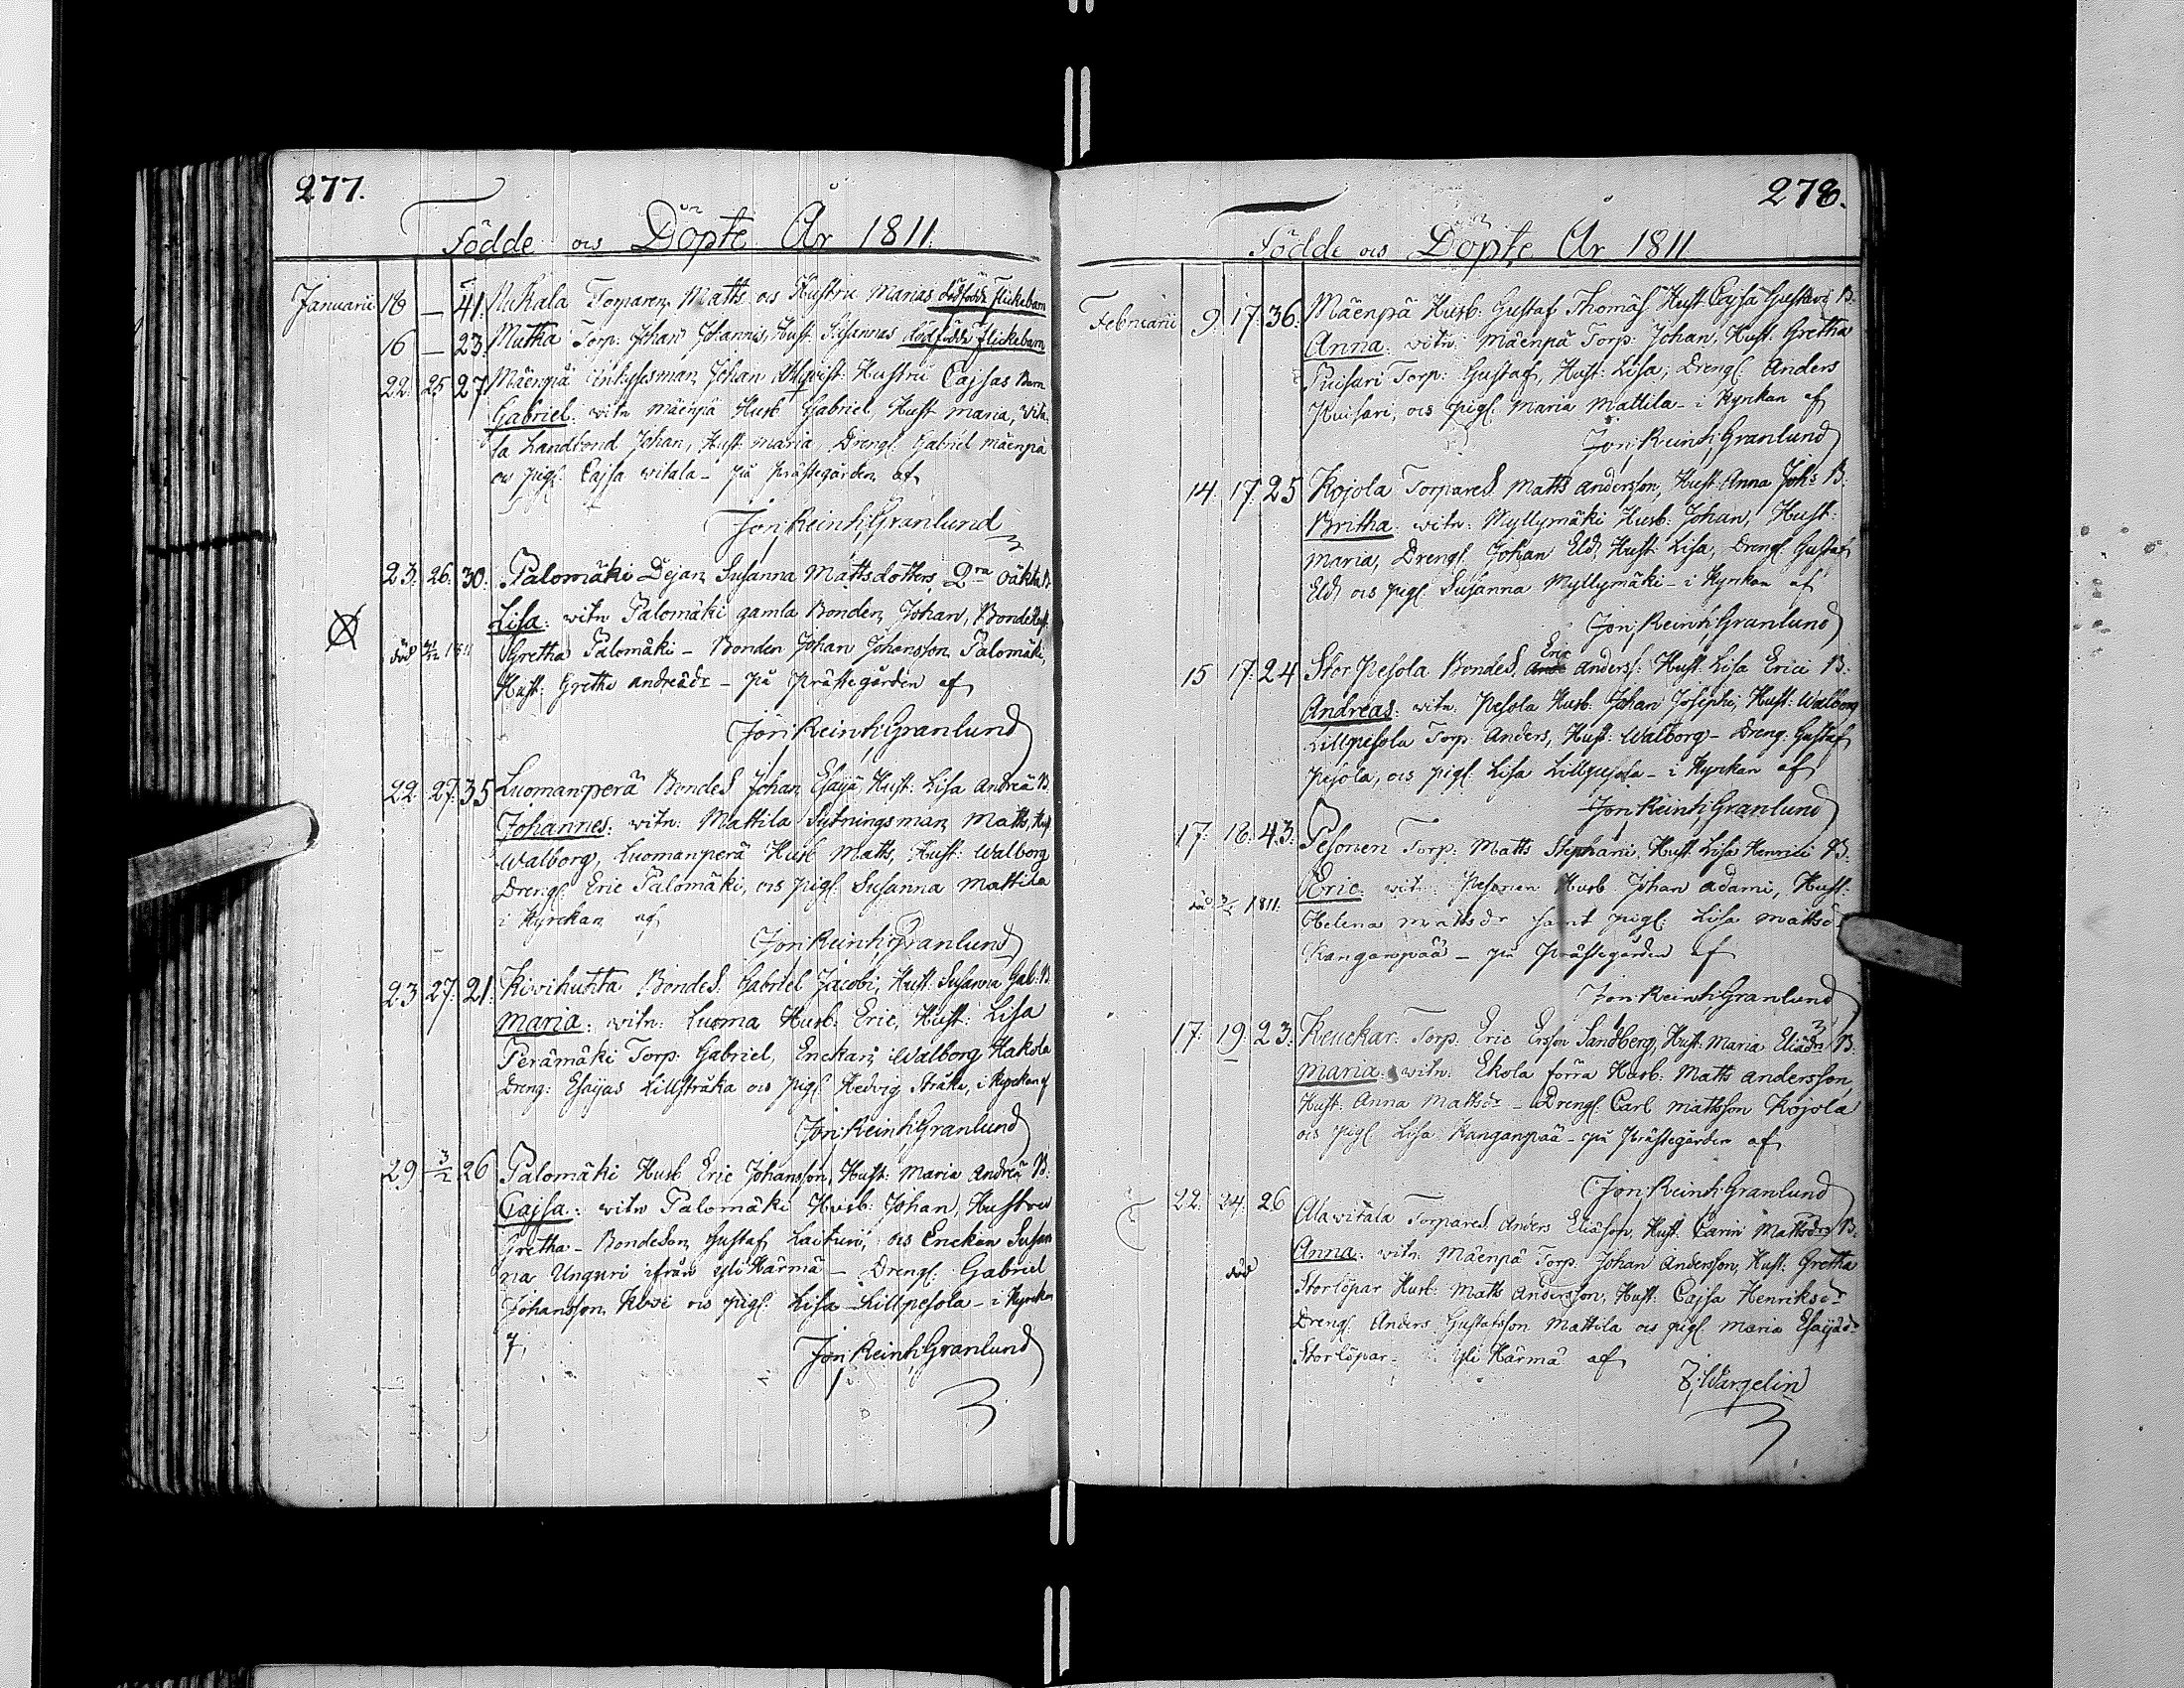 277.
Födde ocs Döpte År 1811.
Januarii 18 — 41. Torparen Matts ocs Hustru Marias dödfödde flickebarn
16 — 23. Mutka Torp: Johan Johannis, Hust: Susannas dödfödde flickebarn
22. 25 27. Mäenpä Johan Ahlqvist: Hustru Cajsas Barn
Gabriel. witn Mäenpä Husb Gabriel, Hust Maria, Vita-
la Landbond Johan, Hust: Maria, Drengs: Gabriel Mäenpä
ocs pigs: Cajsa witala - på Prästegården af
Jon: Reinh: Granlund
23. 26. 30. Palomäki Dejan Susanna Mattsdotters 2ra oäkta B:
Lisa: witn Palomäki gamla Bonden, Johan, Bonde
död 1811 Gretha Palomäki - Bonden Johan Johansson Palomäki,
Hust: Gretha Andreädr - på Prästegården af
Jon: Reinh: Granlund
22. 27. 35 Luomanperä BondeS Johan Esaijä Hust: Lisa Andreä B.
Johannes: witn: Mattila Sytningsman Matts, Hust
Walborg, Luomanperä Husb Matts, Hust: Walborg
Drengs: Eric Palomäki, ocs pigs: Susanna Mattila
i Kyrckan af
Jon: Reinh: Granlund
23 27. 21. Kivihuhta BondeS: Gabriel Jacobi, Hust: Susanna Gab: B
Maria: witn: Luoma Husb: Eric, Hust: Lisa
Perämäki Torp: Gabriel, Enckan Walborg Hakola
Dreng: Esaijas Lillstråka ocs pigs: Hedvig Stråka, i Kyrckan af
Jon: Reinh: Granlund
29 3/2 26 Palomäki Husb Eric Johansson, Hust: Maria Andreä B:
Cajsa: witn Palomäki Husb: Johan, Hustru
Gretha - Bondeson Gustaf ocs Enckan Susan
na Unguri ifrån Yli Härmä - Drengs: Gabriel
Johansson ocs pigs: Lisa Lillpesola - i Kyrckan
Jon: Reinh: Granlund
278.
Födde ocs Döpte År 1811
Februarii 9. 17. 36. Mäenpä Husb: Gustaf Thomäs Hust: Cajsa Gustavi B.
Anna: witn: Mäenpä Torp: Johan, Hust: Gretha
Puisari Torp: Gustaf, Hust: Lisa; Drengs: Anders
Puisari, ocs pigs: Maria Mattila - i Kyrkan af
Jon: Reinh: Granlund
14. 17. 25 Kojola TorpareS Matts Andersson, Hust: Anna Johs B:
Britha: witn: Myllymäki Husb: Johan, Hust:
Maria, Drengs: Johan Eld, Hust: Lisa, Drengs: Gustaf
Eld, ocs pigs: Susanna Myllymäki - i Kyrkan af
Jon: Reinh: Granlund
15 17. 24 Stor Pesola BondeS Eric Anderss: Hust: Lisa Erici B:
Andreas: witn: Pesola Husb: Johan Josephi, Hust: Walborg
Lillpesola Torp: Anders, Hust: Walborg - Dreng: Gustaf
Pesola, ocs pigs: Lisa Lillpesola - i Kyrkan af
Jon: Reinh: Granlund
17. 18. 43. Pesonen Torp: Matts Stephani, Hust: Lisa Henrici B:
Eric: witn: Pesonen Husb Johan Adami, Hust:
död 1811. Helena Mattsdr samt pigs: Lisa Mattsd
Kanganpää - på Prästegården af
Jon: Reinh: Granlund
17. 19. 23. Torp: Eric Ersson Sandberg, Hust: Maria Eliädr B:
Maria: witn: Ekola förra Husb: Matts Andersson,
Hust: Anna Mattsdr - Drengs: Carl Mattsson Kojola
ocs pigs: Lisa Kanganpää - på Prästegården af
Jon: Reinh: Granlund
22. 24. 26 Alavitala TorpareS Anders Eliäson, Hust: Carin Mattsdrs B:
Anna: witn: Mäenpä Torp: Johan Andersson, Hust: Gretha
död Storlöpar Husb: Matts Andersson, Hust: Cajsa Henriksdr
Drengs: Anders Gustafsson Mattila ocs pigs: Maria Esaijädr
Storlöpar - i Yli Härmä af
Z: Wargelin